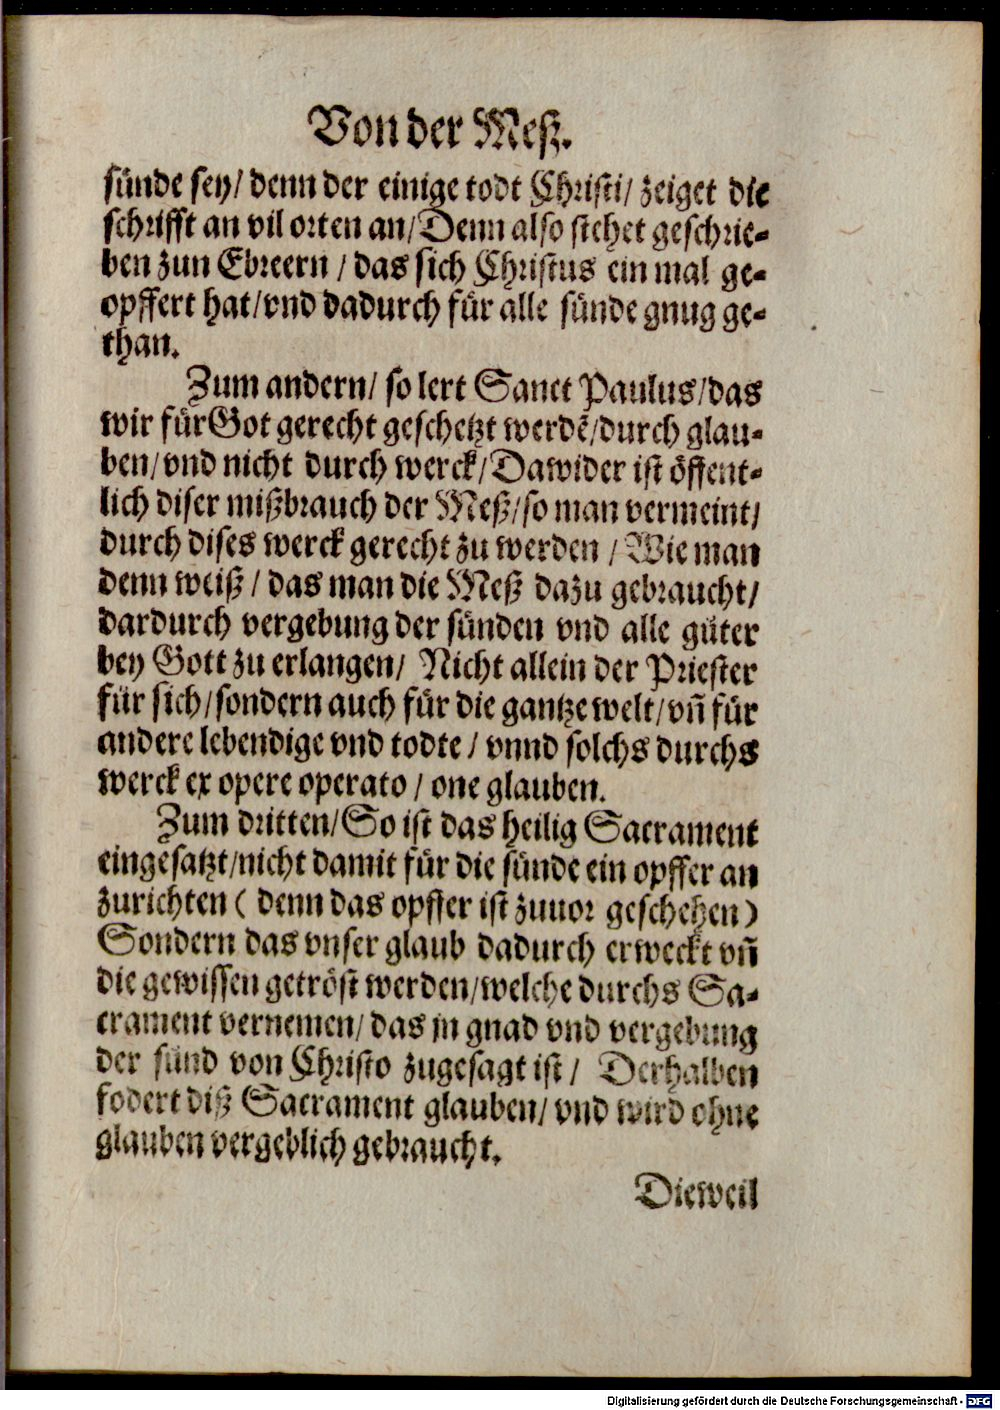 Von der Meß.
sünde sey/ denn der einige todt Christi/ zeiget die
schrifft an vil orten an/ Denn also stehet geschrie-
ben zun Ebreern / das sich Christus ein mal ge-
opffert hat/ vnd dadurch für alle sünde gnug ge-
than.
Zum andern/ so lert Sanct Paulus/ das
wir für Got gerecht geschetzt werdẽ/ durch glau-
ben/ vnd nicht durch werck/ Dawider ist öffent-
lich diser mißbrauch der Meß/ so man vermeint/
durch dises werck gerecht zu werden / Wie man
denn weiß / das man die Meß dazu gebraucht/
dardurch vergebung der sünden vnd alle güter
bey Gott zu erlangen/ Nicht allein der Priester
für sich/ sondern auch für die gantze welt/ vñ für
andere lebendige vnd todte / vnnd solchs durchs
werck ex opere operato / one glauben.
Zum dritten/ So ist das heilig Sacrament
eingesatzt/ nicht damit für die sünde ein opffer an
zurichten ( denn das opffer ist zuuor geschehen)
Sondern das vnser glaub dadurch erweckt vñ
die gewissen getröst werden/ welche durchs Sa-
crament vernemen/ das jn gnad vnd vergebung
der sünd von Christo zugesagt ist / Derhalben
fodert diß Sacrament glauben/ vnd wird ohne
glauben vergeblich gebraucht.
Dieweil
Digitalisierung gefördert durch die Deutsche Forschungsgemeinschaft - DFG